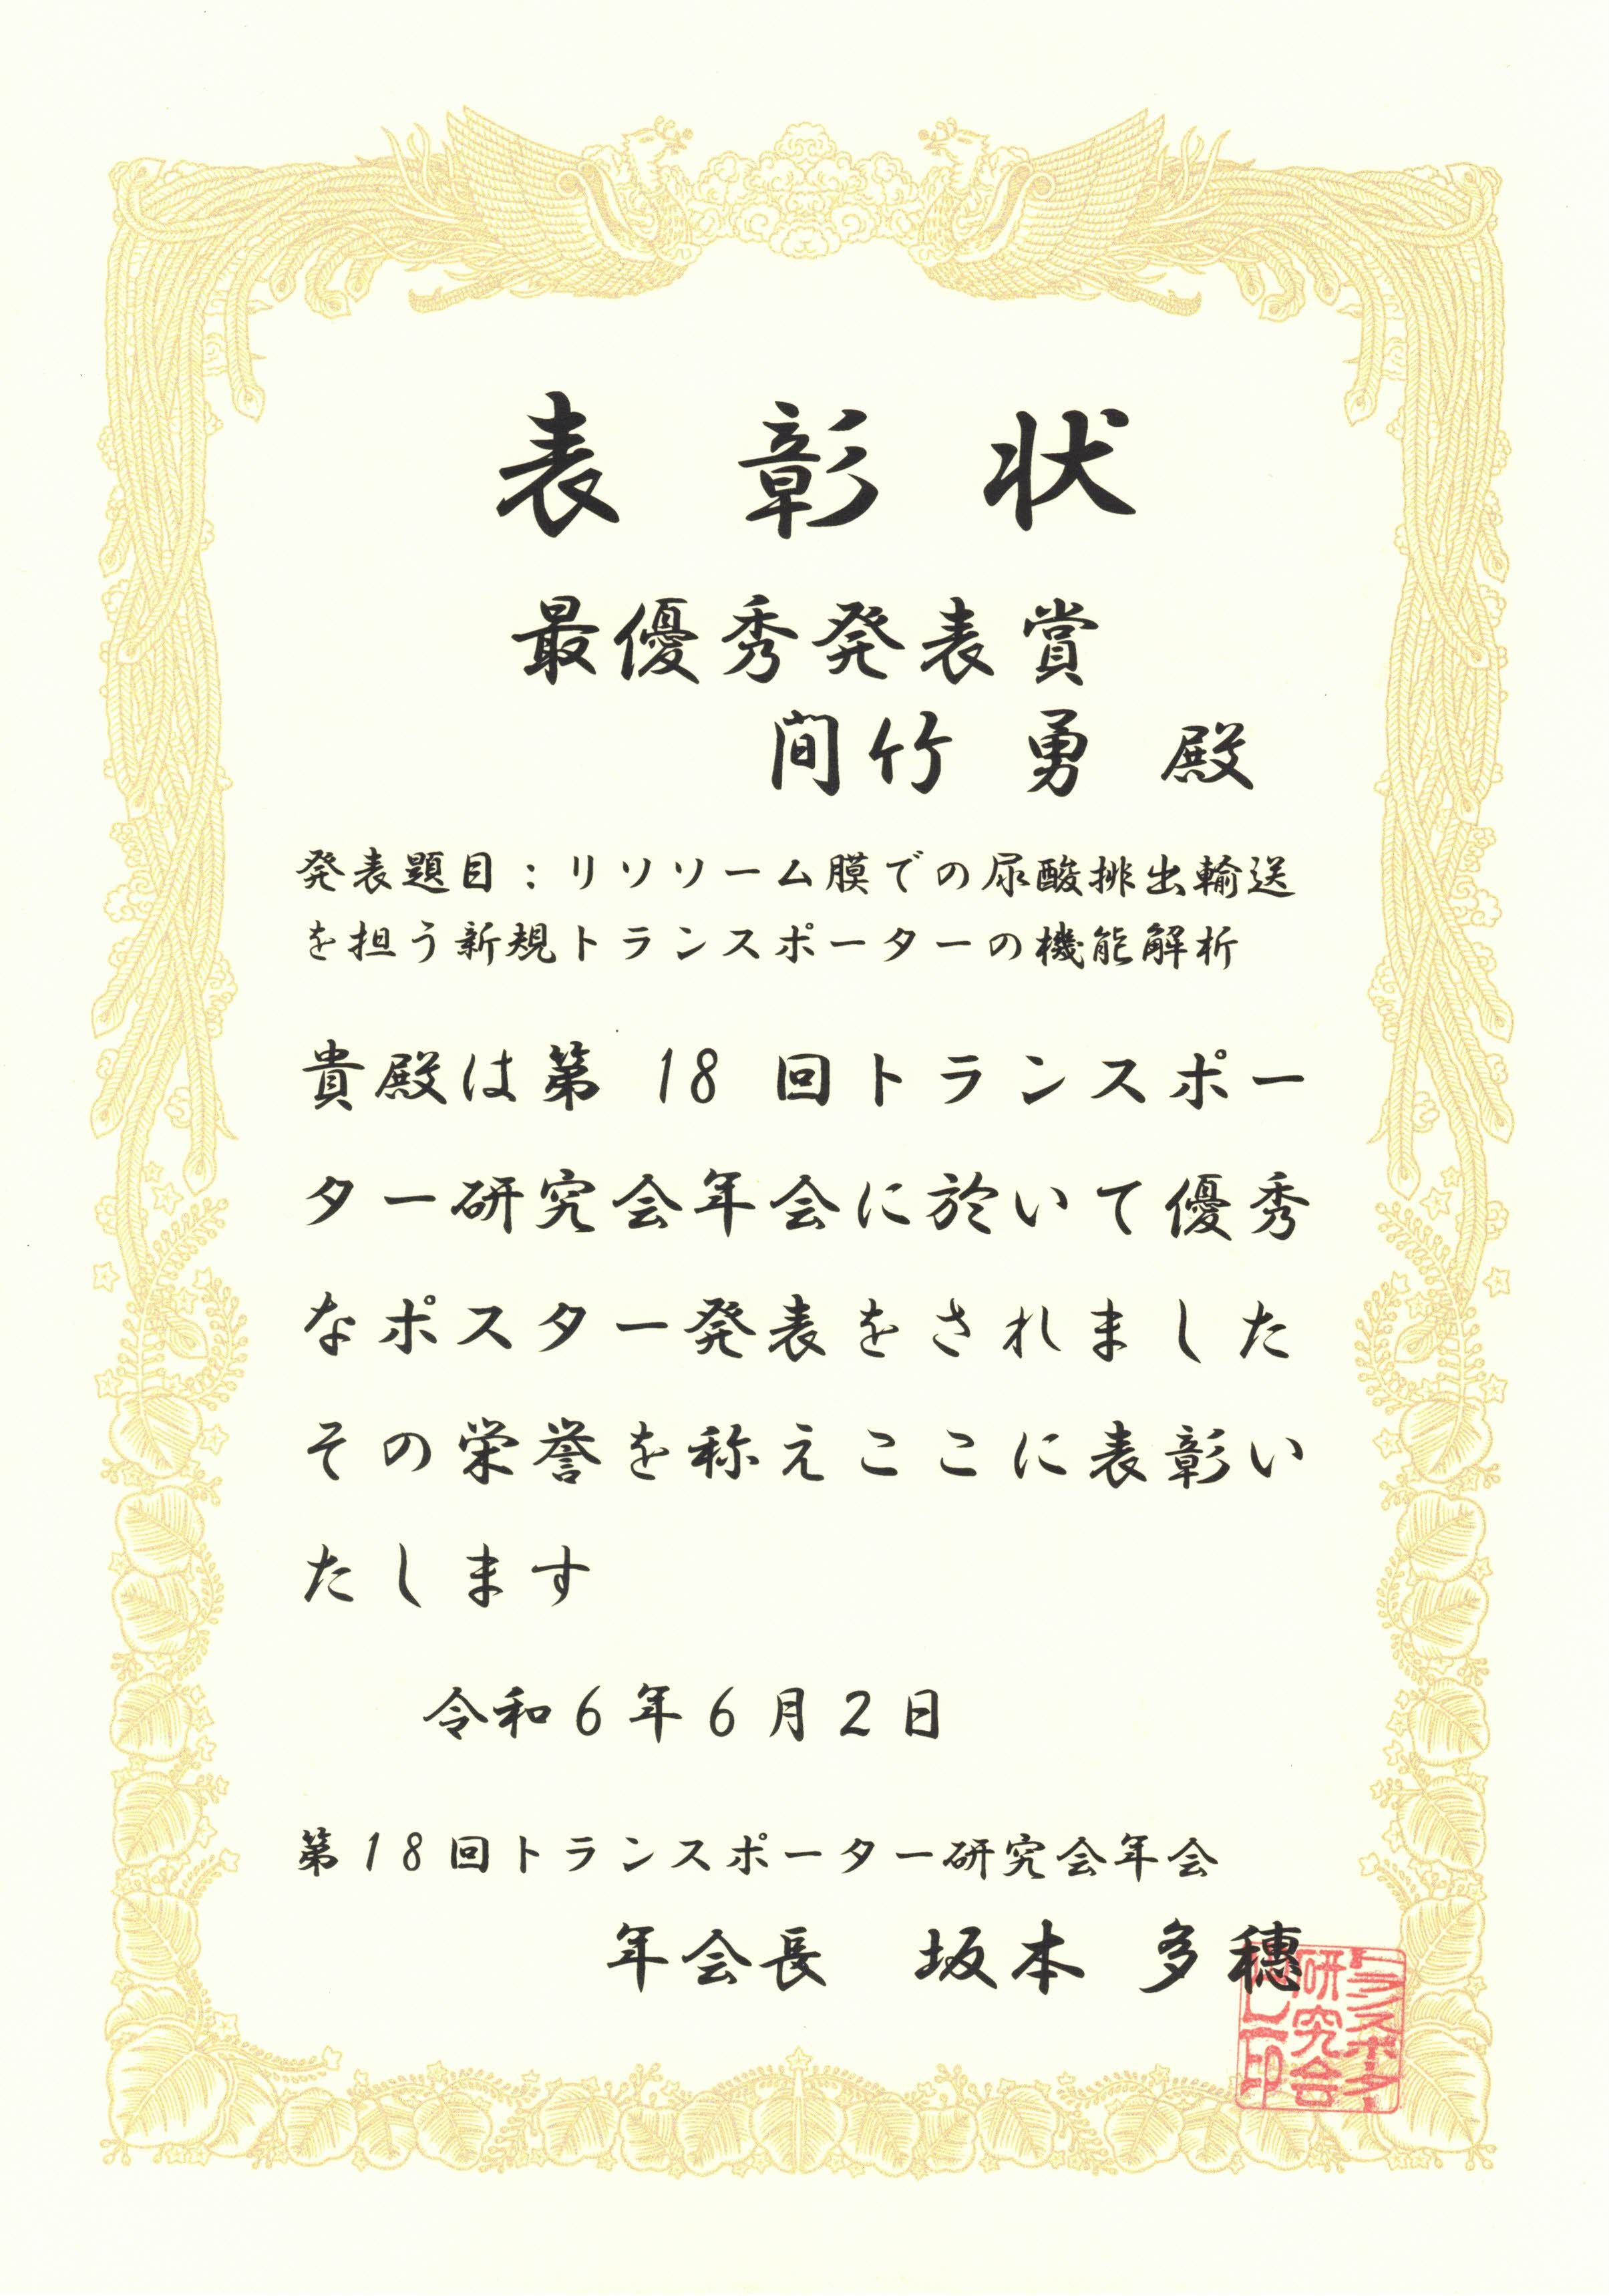 表彰状
最優秀発表賞
間竹 勇 殿
発表題目：リソソーム膜での尿酸排出輸送
を担う新規トランスポーターの機能解析
貴殿は第 18 回トランスポー
ター研究会年会に於いて優秀
なポスター発表をされました
その栄誉を称えここに表彰い
たします
令和6年6月2日
第18回トランスポーター研究会年会
年会長 坂本 多穗
トランスポーター
研究会
印